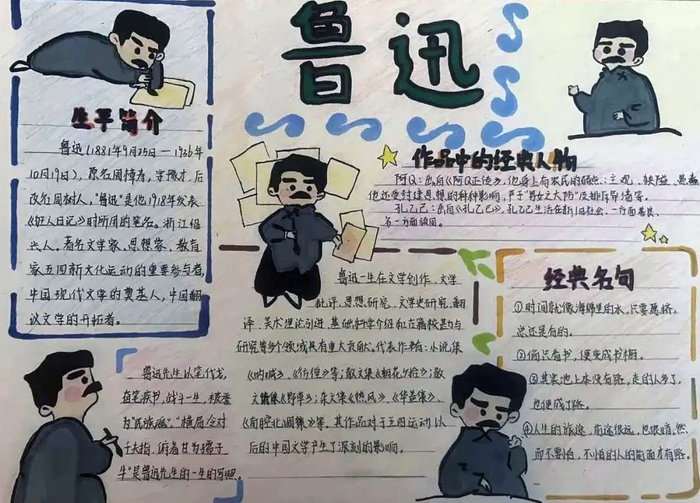 鲁迅
生平简介
鲁迅(1881年9月25日—1936年
10月19日),原名周樟寿,字豫才,后
改名周树人,“鲁迅”是他1918年发表
《狂人日记》时所用的笔名。浙江绍
兴人。著名文学家、思想家、教育
家五四新文化运动的重要参与者,
中国现代文学的奠基人,中国翻
议文学的开拓者。
作品中的经典人物
阿Q:出自《阿Q正传》,他身上有农民的弱点:主观、狭隘、愚
他还受封建思想的种种影响,严于“男女之大防”
孔乙己:出自《孔乙己》,孔乙己生活在新旧社会,一方面善良、
另一方面
鲁迅一生在文学创作、文学
批评、思想研究、文学史研究、翻
译、美术理论引进、基础科学介绍和古籍校勘与
研究等多个领域具有重大贡献。代表作有:小说集
《呐喊》、《彷徨》等;散文集《朝花夕拾》;散
文诗集《野草》;杂文集《热风》、《华盖集》、
《南腔北调集》等,其作品对于五四运动以
后的中国文学产生了深刻的影响。
经典名句
①时间就像海绵里的水,只要愿挤,
总还是有的。
②倘只看书,便变成书橱。
③其实地上本没有路,走的人多了,
也便成了路。
④人生的旅途,前途很远,也很暗,然
而不要怕,不怕的人的面前才有路。
鲁迅先生以笔代戈,
奋笔疾书,战斗一生,被誉
为“民族魂”,“横眉冷对
千夫指,俯首甘为孺子
牛”是鲁迅先生的一生的写照。